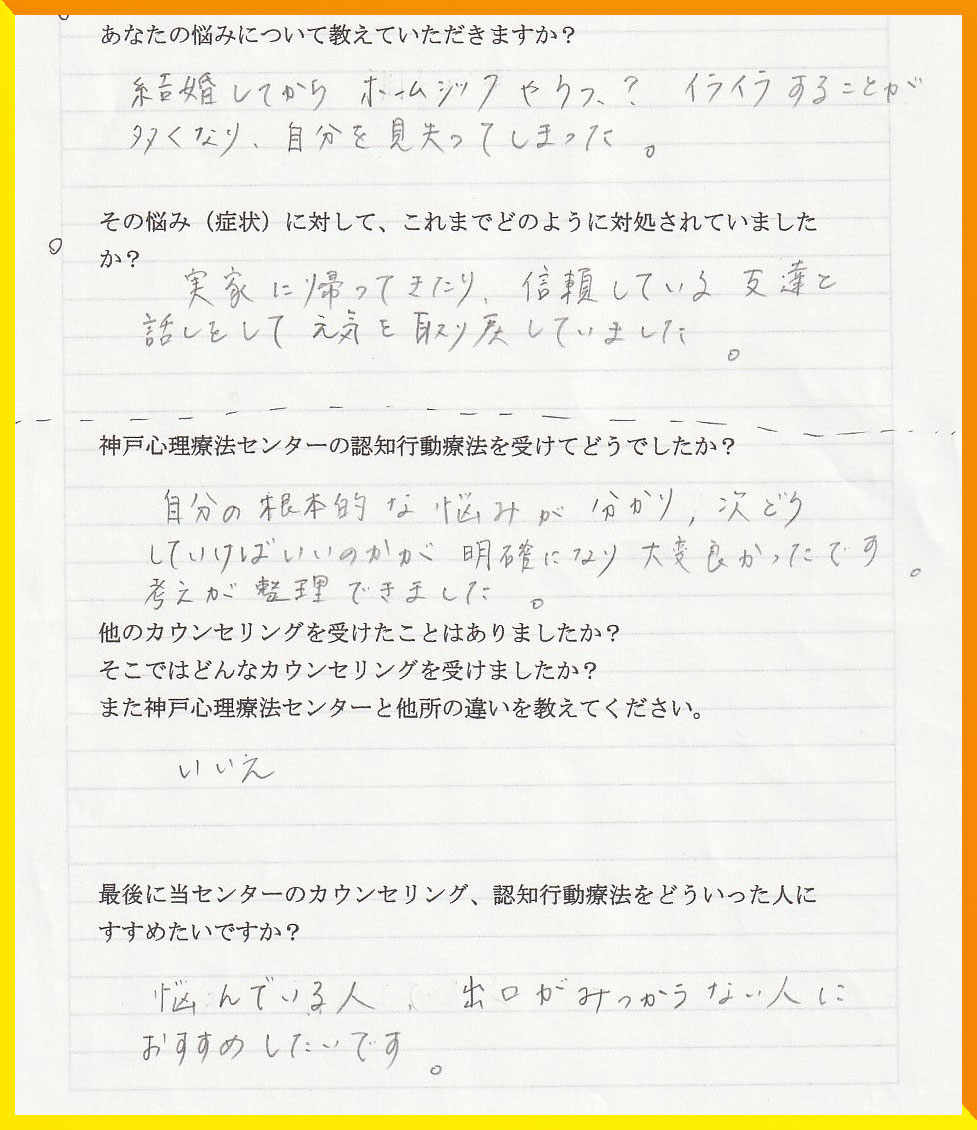 あなたの悩みについて教えていただきますか？
結婚してから ホームシックやうつ、？ イライラすることが
多くなり、自分を見失ってしまった。
その悩み（症状）に対して、これまでどのように対処されていました
か？
実家に帰ってきたり、信頼している友達と
話しをして元気を取り戻していました。
神戸心理療法センターの認知行動療法を受けてどうでしたか？
自分の根本的な悩みが分かり，次どう
していけばいいのかが明確になり大変良かったです。
考えが整理できました。
他のカウンセリングを受けたことはありましたか？
そこではどんなカウンセリングを受けましたか？
また神戸心理療法センターと他所の違いを教えてください。
いいえ
最後に当センターのカウンセリング、認知行動療法をどういった人に
すすめたいですか？
悩んでいる人、出口がみつからない人に
おすすめしたいです。